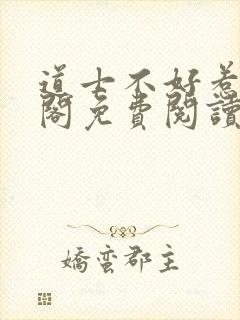 道士不好惹
閣免費閱讀
嬌蠻郡主